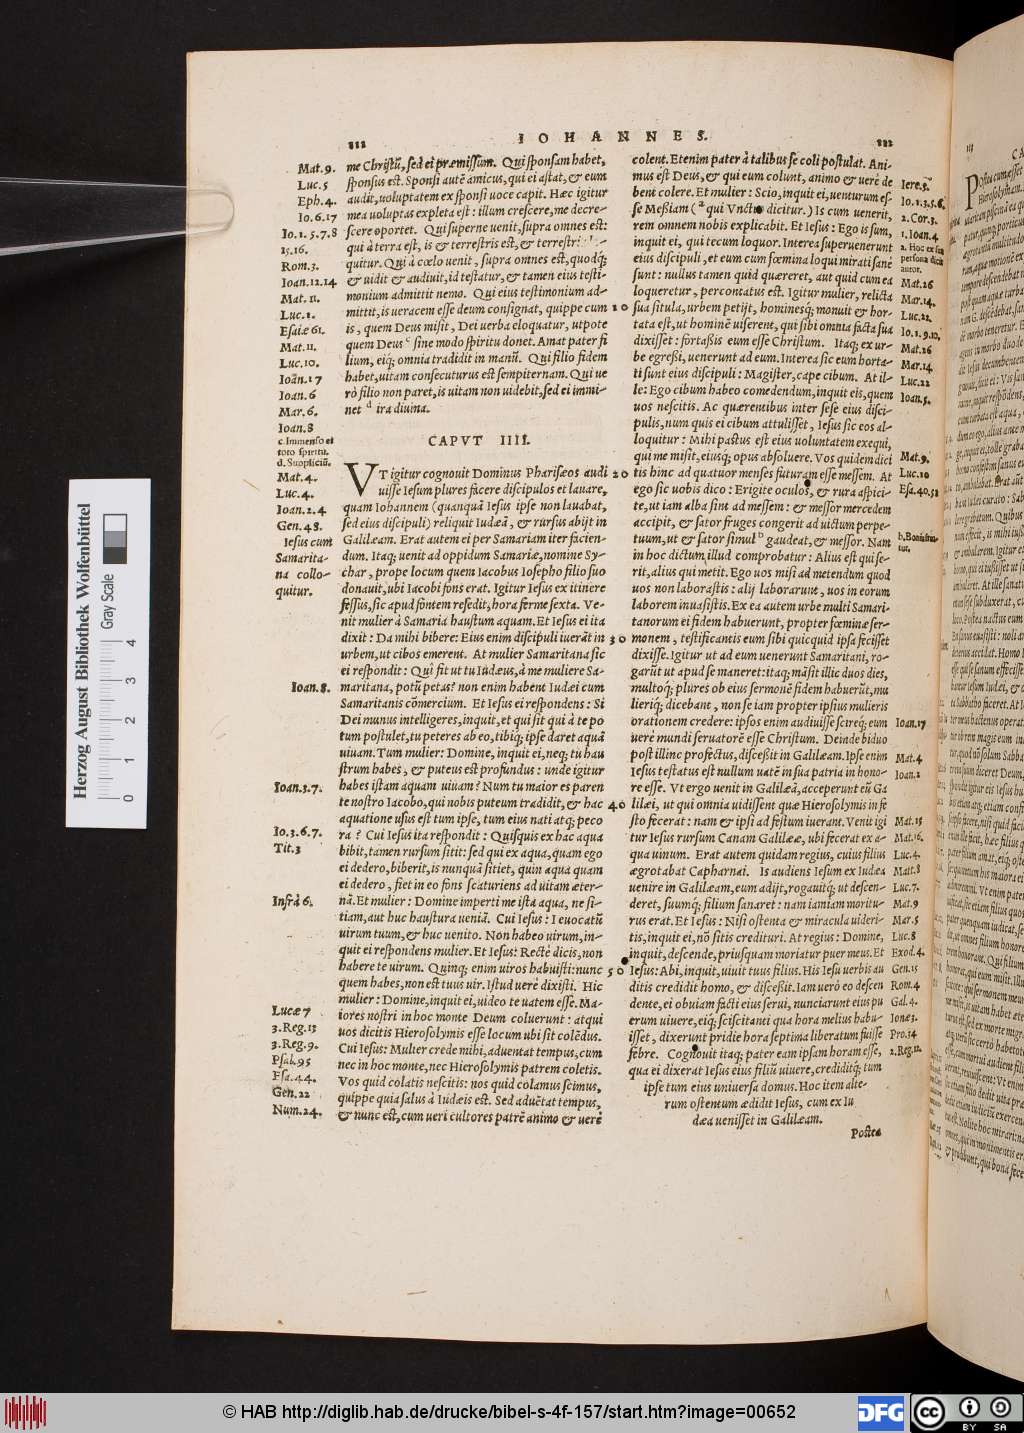 111 IOHANNES. 111
me Christū, sed ei præmissum. Qui sponsam habet,
sponsus est. Sponsi autē amicus, qui ei astat, & eum
audit, uoluptatem ex sponsi uoce capit. Hæc igitur
mea uoluptas expleta est: illum crescere, me decre-
scere oportet. Qui superne uenit, supra omnes est:
qui à terra est, is & terrestris est, &
quitur. Qui à cœlo uenit, supra omnes est, quodq́;
& uidit & audiuit, id testatur, & tamen eius testi-
monium admittit nemo. Qui eius testimonium ad-
mittit, is ueracem esse deum consignat, quippe cum
is, quem Deus misit, Dei uerba eloquatur, utpote
quem Deus c sine modo spiritu donet. Amat pater fi
lium, eiq́; omnia tradidit in manū. Qui filio fidem
habet, uitam consecuturus est sempiternam. Qui ue
rò filio non paret, is uitam non uidebit, sed ei immi-
net d ira diuina.
CAPVT IIII.
VT igitur cognouit Dominus Pharisæos audi
uisse Iesum plures facere discipulos et lauare,
quam Iohannem (quanquā Iesus ipse non lauabat,
sed eius discipuli) reliquit Iudæā, & rursus abijt in
Galilæam. Erat autem ei per Samariam iter facien-
dum. Itaq; uenit ad oppidum Samariæ, nomine Sy-
char, prope locum quem Iacobus Iosepho filio suo
donauit, ubi Iacobi fons erat. Igitur Iesus ex itinere
fessus, sic apud fontem resedit, hora ferme sexta. Ve-
nit mulier à Samaria haustum aquam. Et Iesus ei ita
dixit: Da mihi bibere: Eius enim discipuli iuerāt in
urbem, ut cibos emerent. At mulier Samaritana sic
ei respondit: Quî fit ut tu Iudæus, à me muliere Sa-
maritana, potū petas? non enim habent Iudæi cum
Samaritanis cōmercium. Et Iesus ei respondens: Si
Dei munus intelligeres, inquit, et qui sit qui à te po
tum postulet, tu peteres ab eo, tibiq; ipse daret aquā
uiuam. Tum mulier: Domine, inquit ei, neq; tu hau
strum habes, & puteus est profundus: unde igitur
habes istam aquam uiuam? Num tu maior es paren
te nostro Iacobo, qui nobis puteum tradidit, & hac
aquatione usus est tum ipse, tum eius nati atq; peco
ra? Cui Iesus ita respondit: Quisquis ex hac aqua
bibit, tamen rursum sitit: sed qui ex aqua, quam ego
ei dedero, biberit, is nunquā sitiet, quin aqua quam
ei dedero, fiet in eo fons scaturiens ad uitam æter-
nā. Et mulier: Domine imperti me istā aqua, ne si-
tiam, aut huc haustura ueniā. Cui Iesus: I euocatū
uirum tuum, & huc uenito. Non habeo uirum, in-
quit ei respondens mulier. Et Iesus: Rectè dicis, non
habere te uirum. Quinq; enim uiros habuisti: nunc
quem habes, non est tuus uir. Istud uerè dixisti. Hic
mulier: Domine, inquit ei, uideo te uatem esse. Ma-
iores nostri in hoc monte Deum coluerunt: atqui
uos dicitis Hierosolymis esse locum ubi sit colēdus.
Cui Iesus: Mulier crede mihi, aduentat tempus, cum
nec in hoc monte, nec Hierosolymis patrem coletis.
Vos quid colatis nescitis: nos quid colamus scimus,
quippe quia salus à Iudæis est. Sed aduētat tempus,
& nunc est, cum ueri cultores patrē animo & uerè
Mat. 9.
Luc. 5
Eph. 4.
Io. 6. 17
Io. 1. 5. 7. 8
15. 16.
Rom. 3.
Ioan. 12. 14
Mat. 11.
Luc. 1.
Esaiæ 61.
Mat. 11.
Luc. 10.
Ioān. 17
Ioan. 6
Mar. 6.
Ioan. 8
c. Immenso et
toto spiritu.
d. Suppliciū.
Mat. 4.
Luc. 4.
Ioan. 2. 4
Gen. 48.
Iesus cum
Samarita-
na collo-
quitur.
Ioan. 8.
Ioan. 3. 7.
Io. 3. 6. 7.
Tit. 3
Infrà 6.
Lucæ 7
3. Reg. 13
3. Reg. 9.
Psal. 95
Esa. 44.
Gen. 22
Num. 24.
10
20
30
40
50
colent. Etenim pater à talibus se coli postulat. Ani-
mus est Deus, & qui eum colunt, animo & uerè de
bent colere. Et mulier: Scio, inquit ei, uenturum es-
se Meßiam (a qui Vnctus dicitur.) Is cum uenerit,
rem omnem nobis explicabit. Et Iesus: Ego is sum,
inquit ei, qui tecum loquor. Interea superuenerunt
eius discipuli, et eum cum fœmina loqui mirati sanè
sunt: nullus tamen quid quæreret, aut quid cum ea
loqueretur, percontatus est. Igitur mulier, relicta
sua situla, urbem petijt, hominesq́; monuit & hor-
tata est, ut hominē uiserent, qui sibi omnia facta sua
dixisset: fortaßis eum esse Christum. Itaq; ex ur-
be egreßi, uenerunt ad eum. Interea sic eum horta-
ti sunt eius discipuli: Magister, cape cibum. At il-
le: Ego cibum habeo comedendum, inquit eis, quem
uos nescitis. Ac quærentibus inter sese eius disci-
pulis, num quis ei cibum attulisset, Iesus sic eos al-
loquitur: Mihi pastus est eius uoluntatem exequi,
qui me misit, eiusq́; opus absoluere. Vos quidem dici
tis hinc ad quatuor menses futuram esse messem. At
ego sic uobis dico: Erigite oculos, & rura aspici-
te, ut iam alba sint ad messem: & messor mercedem
accipit, & sator fruges congerit ad uictum perpe-
tuum, ut & sator simul b gaudeat, & messor. Nam
in hoc dictum illud comprobatur: Alius est qui se-
rit, alius qui metit. Ego uos misi ad metendum quod
uos non laborastis: alij laborarunt, uos in eorum
laborem inuasistis. Ex ea autem urbe multi Samari-
tanorum ei fidem habuerunt, propter fœminæ ser-
monem, testificantis eum sibi quicquid ipsa fecisset
dixisse. Igitur ut ad eum uenerunt Samaritani, ro-
garūt ut apud se maneret: itaq; māsit illic duos dies,
multoq́; plures ob eius sermonē fidem habuerūt, mu
lieriq́; dicebant, non se iam propter ipsius mulieris
orationem credere: ipsos enim audiuisse scireq́; eum
uerè mundi seruatorē esse Christum. Deinde biduo
post illinc profectus, disceßit in Galilæam. Ipse enim
Iesus testatus est nullum uatē in sua patria in hono-
re esse. Vt ergo uenit in Galilæā, acceperunt eū Ga
lilæi, ut qui omnia uidissent quæ Hierosolymis in fe
sto fecerat: nam & ipsi ad festum iuerant. Venit igi
tur Iesus rursum Canam Galilææ, ubi fecerat ex a-
qua uinum. Erat autem quidam regius, cuius filius
ægrotabat Capharnai. Is audiens Iesum ex Iudæa
uenire in Galilæam, eum adijt, rogauitq́; ut descen-
deret, suumq́; filium sanaret: nam iamiam moritu-
rus erat. Et Iesus: Nisi ostenta & miracula uideri-
tis, inquit ei, nō sitis credituri. At regius: Domine,
inquit, descende, priusquam moriatur puer meus. Et
Iesus: Abi, inquit, uiuit tuus filius. His Iesu uerbis au
ditis credidit homo, & disceßit. Iam uerò eo descen
dente, ei obuiam facti eius serui, nunciarunt eius pu
erum uiuere, eiq́; sciscitanti qua hora melius habu-
isset, dixerunt pridie hora septima liberatum fuisse
febre. Cognouit itaq; pater eam ipsam horam esse,
qua ei dixerat Iesus eius filiū uiuere, crediditq́; tum
ipse tum eius uniuersa domus. Hoc item alte-
rum ostentum ædidit Iesus, cum ex Iu
dæa uenisset in Galilæam.
Postea
Iere. 5.
Io. 1. 3. 5. 6.
2. Cor. 3.
1. Ioan. 4
a. Hoc ex sua
persona dicit
autor.
Mat. 26
Mar. 14.
Luc. 22.
Io. 1. 9. 10.
Mat. 26
Mar. 14
Luc. 22
Ioan. 5.
Mat. 9.
Luc. 10
Esa. 40. 52
Ioan. 17
Mat. 4
Ioan. 2
Mat. 15
Mat. 16.
Luc. 4.
Matt. 8
Luc. 7.
Mat. 9
Mar. 5
Luc. 8
Exod. 4.
Gen. 15
Rom. 4
Gal. 4.
Ionæ 3.
Pro. 14
2. Reg. 12.
Herzog August Bibliothek Wolfenbüttel
Gray Scale
0 1 2 3 4
© HAB http://diglib.hab.de/drucke/bibel-s-4f-157/start.htm?image=00652
DFG
cc BY SA